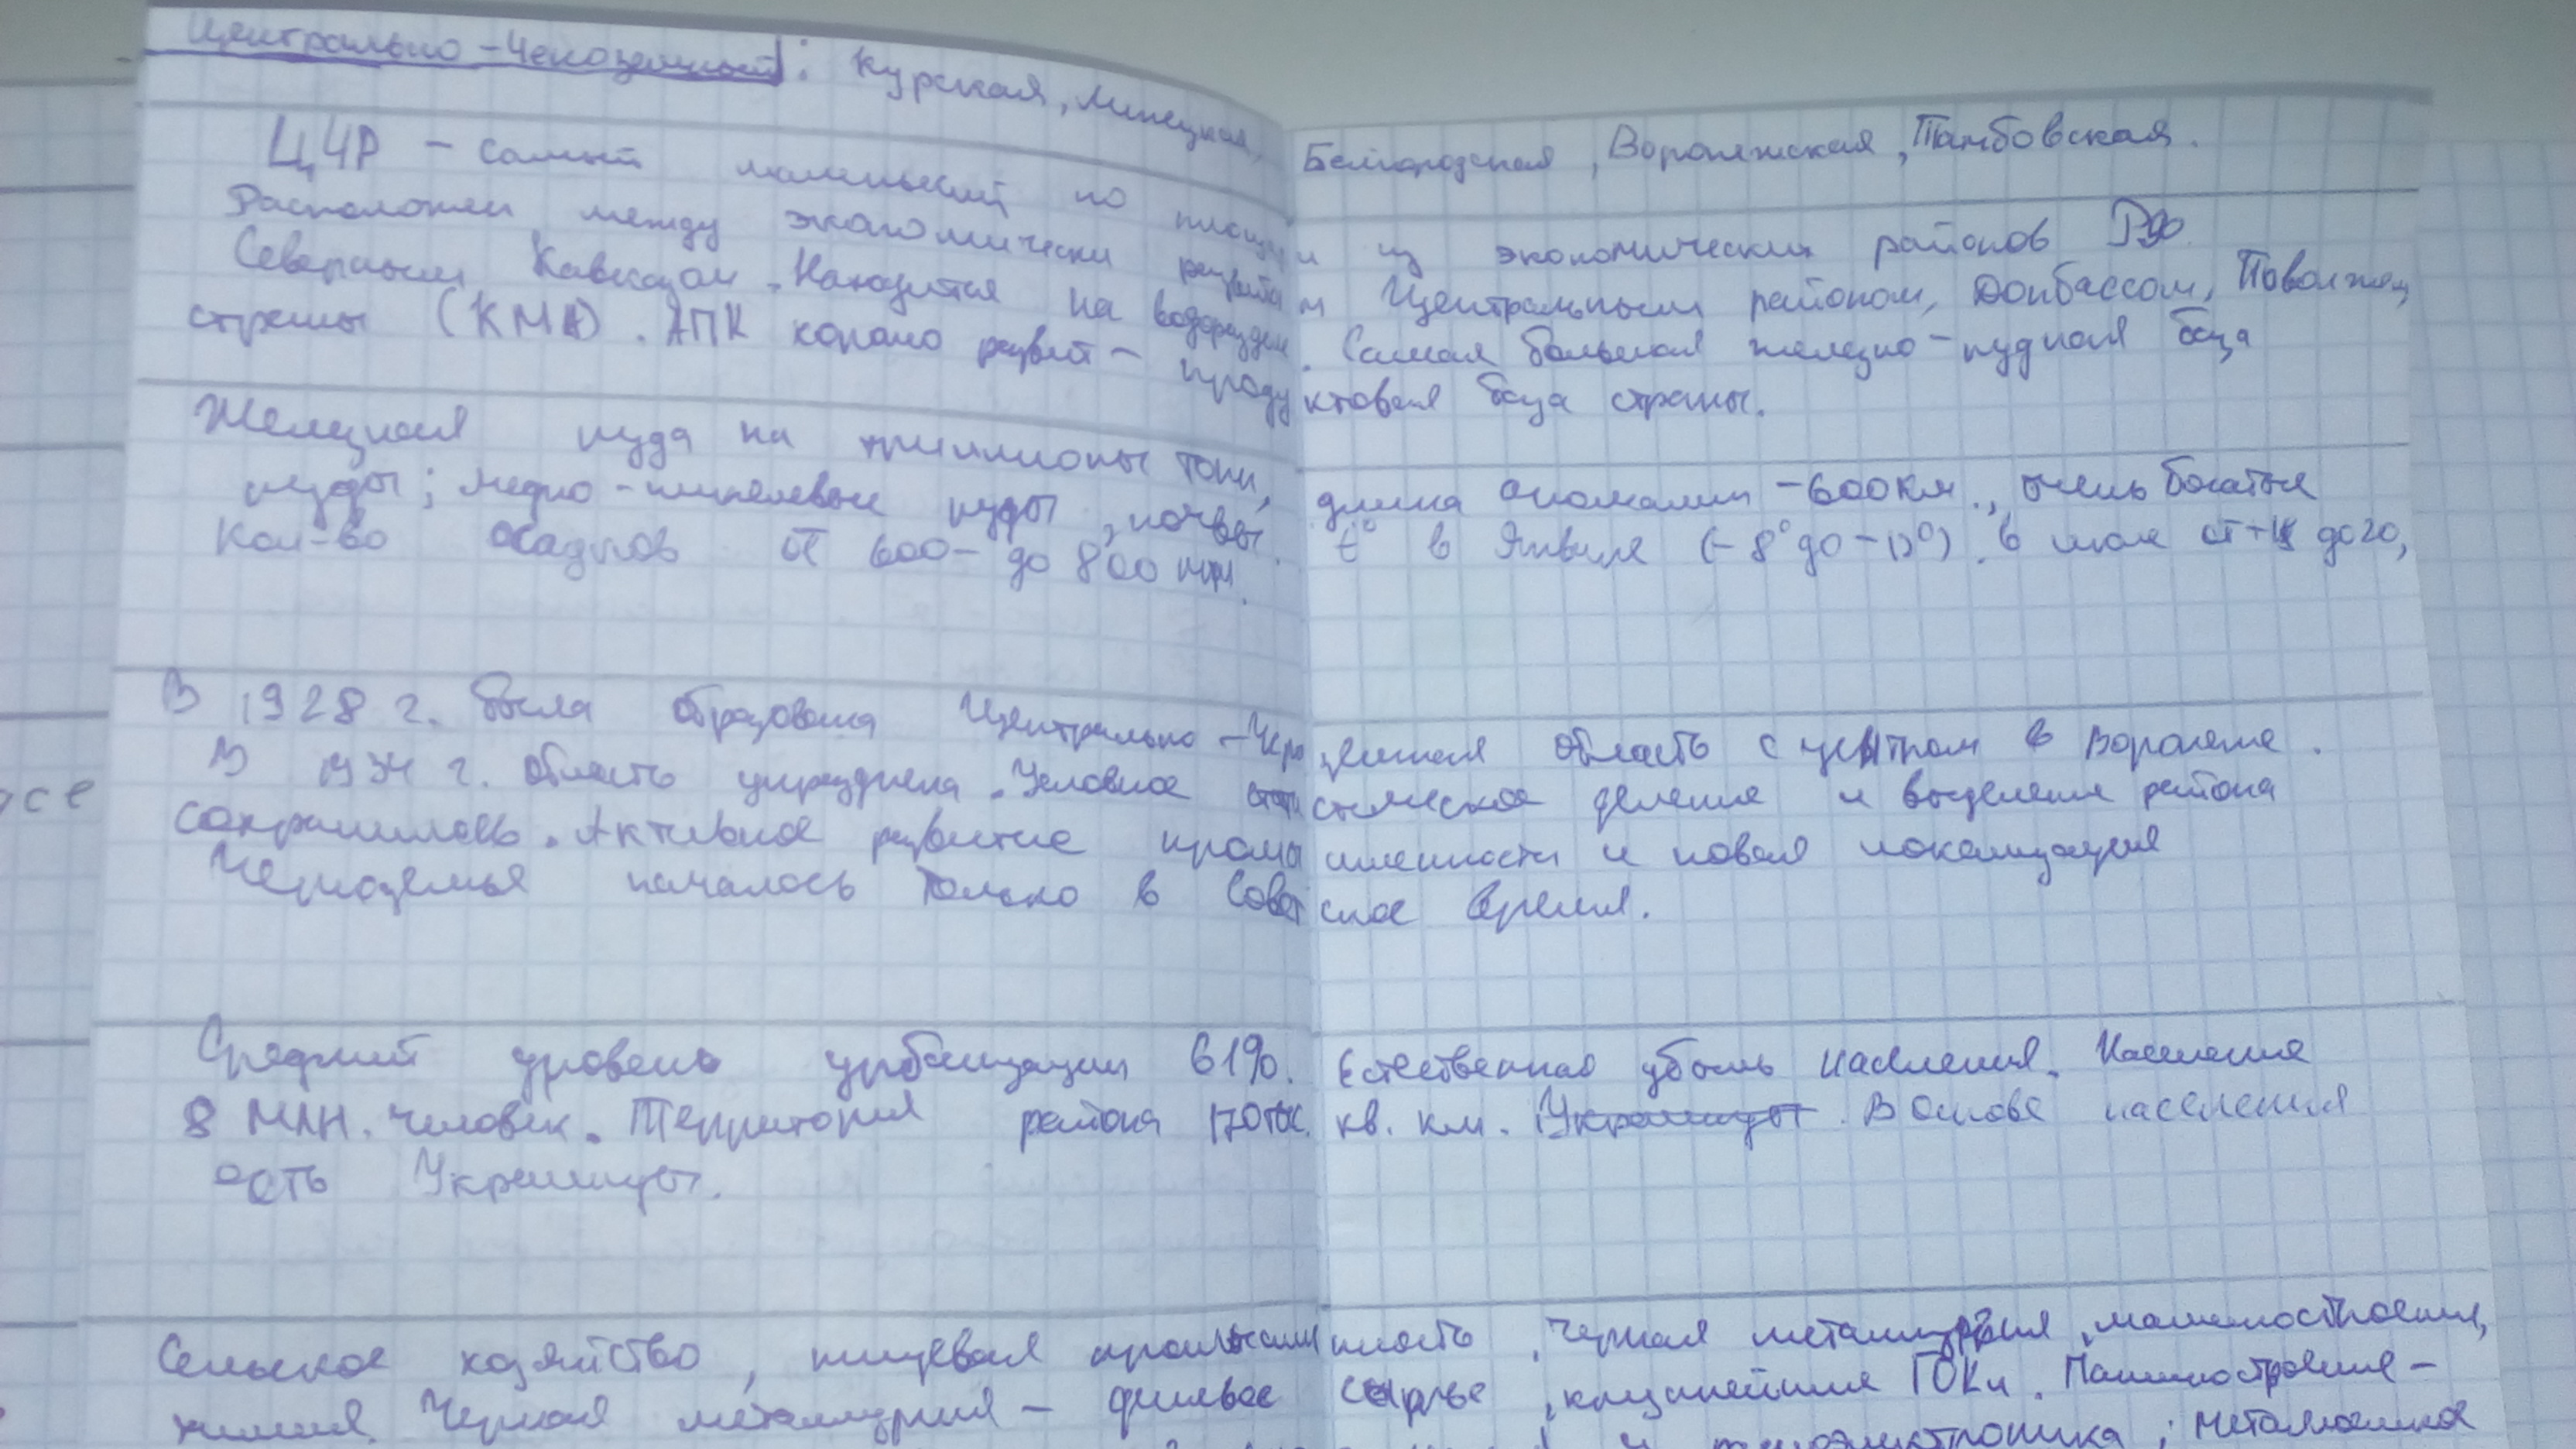 Центрально-Чекоземный: Курская, Липецкая, Белгородская, Воронежская, Тамбовская.
ЦЧР - самый маленький по площади из экономических районов РФ
Расположен между экономически развитым Центральным районом, Донбассом, Поволжем,
Северным Кавказом. Находится на водоразделе. Самая большая железно-рудная база
страны (КМА). АПК хорошо развит - продуктовая база страны.
Железная руда на триллионы тонн, длина аномалии - 600 км., очень богатые
руды; медно-никелевые руды, почвы. t° в Январе (-8° до -12°). в июле от +18 до 20,
Кол-во осадков от 600- до 800 мм.
В 1928 г. была образована Центрально-Чернозёмная область с центром в Воронеже.
В 1934 г. область упразднена. Условное статистическое деление и выделение района
сохранилось. Активное развитие промышленности и новая локализация
Черноземья началось только в Советское время.
Средний уровень урбанизации 61%. Естественная убыль населения. Население
8 млн. человек. Территория района 170 тыс. кв. км. Украинцы. В основе населения
есть Украинцы.
Сельское хозяйство, пищевая промышленность, черная металлургия, машиностроения,
химия. Черная металлургия - дешевое сырье, крупнейшие ГОКи. Машиностроение -
и радиоэлектроника; металлоемкое